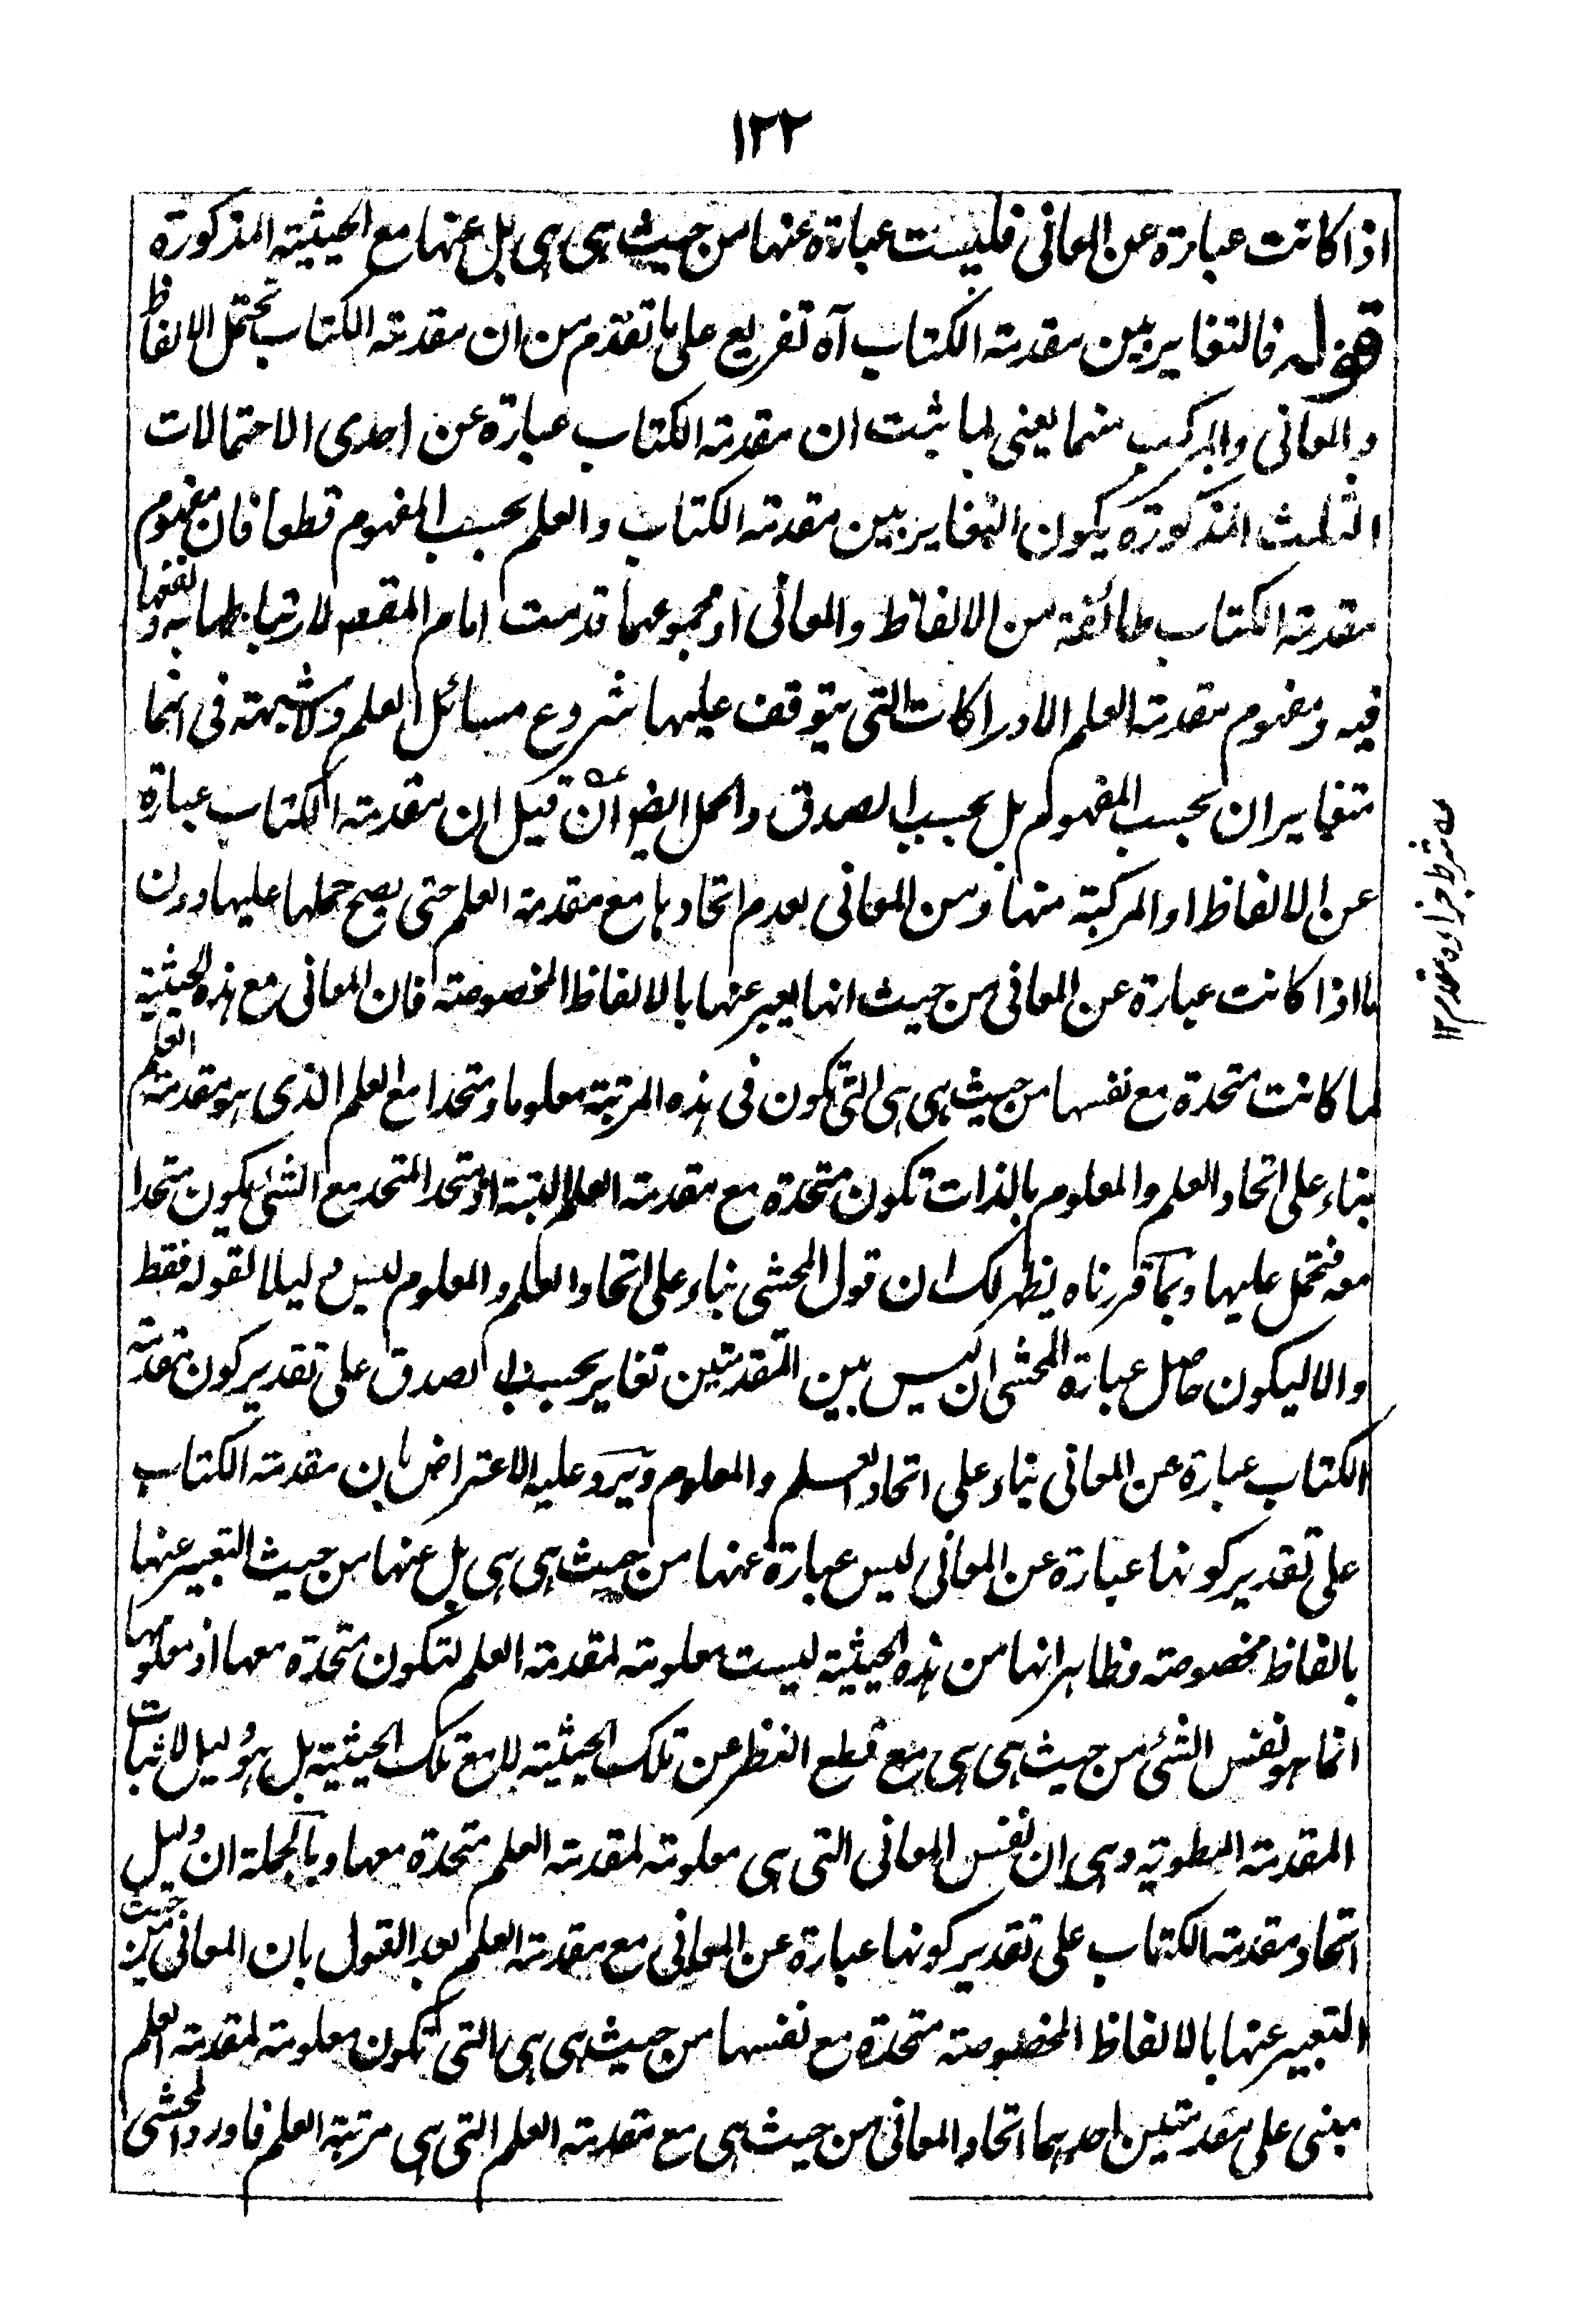 ١٢٢
اذا كانت عبارة عن المعانى فليست عبارة عنها من حيث هى هى بل عنها مع الحيثية المذكورة
قوله فالتغاير بين مقدمة الكتاب آه تفريع على ما تقدم من ان مقدمة الكتاب تحتمل الالفاظ
والمعانى والمركب منهما يعنى لما ثبت ان مقدمة الكتاب عبارة عن احدى الاحتمالات
الثلث المذكورة يكون التغاير بين مقدمة الكتاب والعلم بحسب المفهوم قطعا فان مفهوم
مقدمة الكتاب طائفة من الالفاظ والمعانى او مجموعهما قدمت امام المقصود لارتباطها به ونفعها
فيه ومفهوم مقدمة العلم الادراكات التى يتوقف عليها شروع مسائل العلم ولا شبهة فى انهما
متغايران بحسب المفهوم بل بحسب الصدق والحمل ايضا ان قيل ان مقدمة الكتاب عبارة
عن الالفاظ او المركبة منها ومن المعانى لعدم اتحادها مع مقدمة العلم حتى يصح حملها عليها دون
ما اذا كانت عبارة عن المعانى من حيث انها يعبر عنها بالالفاظ المخصوصة فان المعانى مع هذه الحيثية
لما كانت متحدة مع نفسها من حيث هى هى التى تكون فى هذه المرتبة معلوما ومتحدا مع العلم الذى هو مقدمة العلم
بناء على اتحاد العلم والمعلوم بالذات تكون متحدة مع مقدمة العلم البتة اذ متحد المتحد مع الشئ يكون متحدا
معه فتحمل عليها وبما قررناه يظهر لك ان قول المحشى بناء على اتحاد العلم والمعلوم ليس دليلا لقوله فقط
والا ليكون حاصل عبارة المحشى ان ليس بين المقدمتين تغاير بحسب الصدق على تقدير كون مقدمة
الكتاب عبارة عن المعانى بناء على اتحاد العلم والمعلوم ويرد عليه الاعتراض بان مقدمة الكتاب
على تقدير كونها عبارة عن المعانى ليس عبارة عنها من حيث هى هى بل عنها من حيث التعبير عنها
بالفاظ مخصوصة وظاهر انها من هذه الحيثية ليست معلومة لمقدمة العلم لتكون متحدة معها اذ معلومها
انما هو نفس الشئ من حيث هى هى مع قطع النظر عن تلك الحيثية لا مع تلك الحيثية بل هو دليل لاثبات
المقدمة المطوية وهى ان نفس المعانى التى هى معلومة لمقدمة العلم متحدة معها وبالجملة ان دليل
اتحاد مقدمة الكتاب على تقدير كونها عبارة عن المعانى مع مقدمة العلم بعد القول بان المعانى من حيث
التعبير عنها بالالفاظ المخصوصة متحدة مع نفسها من حيث هى هى التى تكون معلومة لمقدمة العلم
مبنى على مقدمتين احدهما اتحاد المعانى من حيث هى مع مقدمة العلم التى هى مرتبة العلم فاورد المحشى
شرط جزاؤه مقدم ١٢